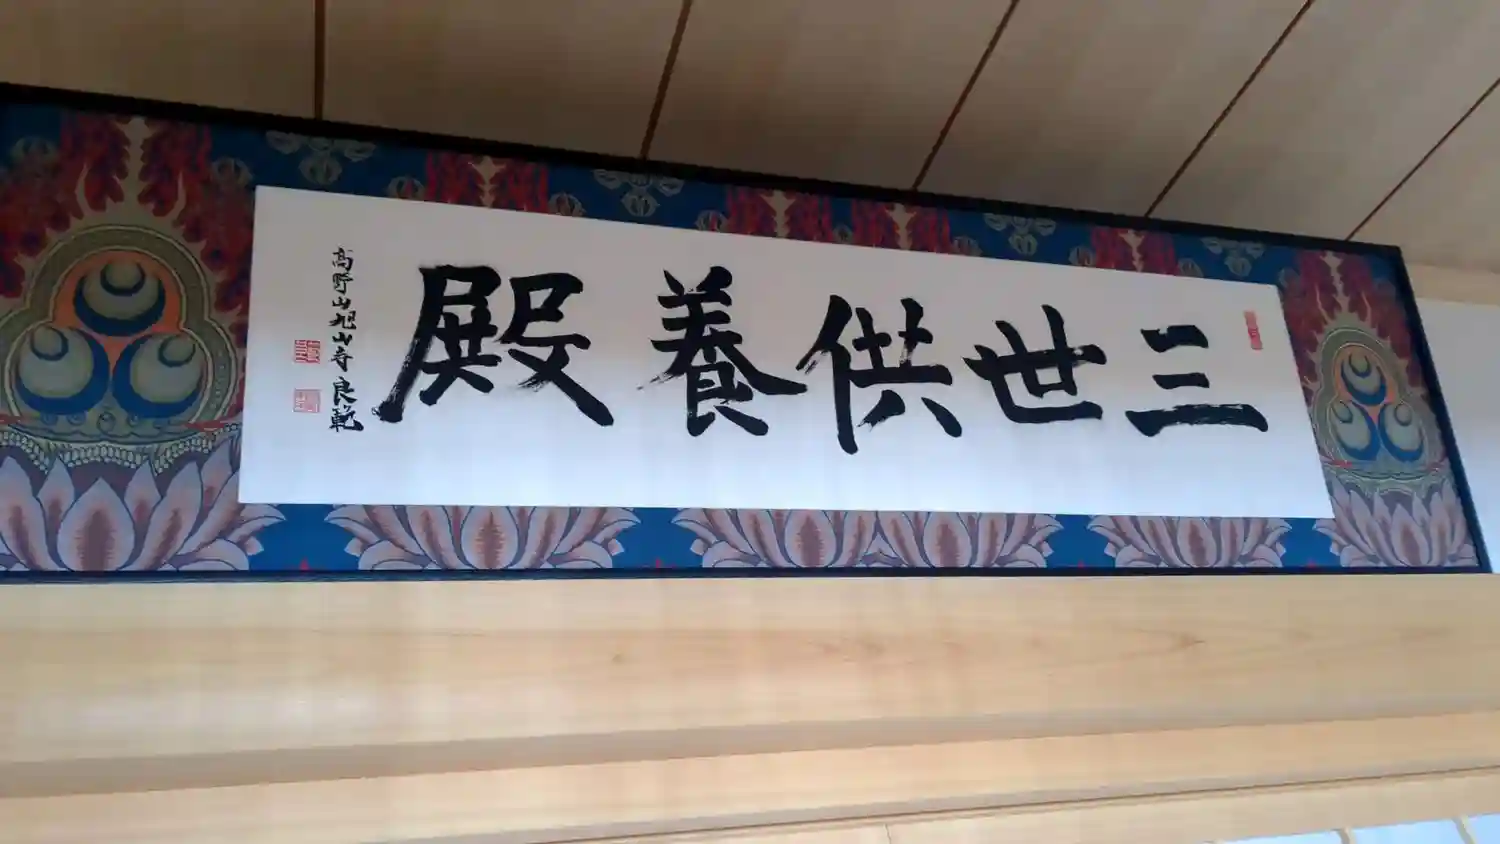 三世供養殿
高野山旭山寺良範